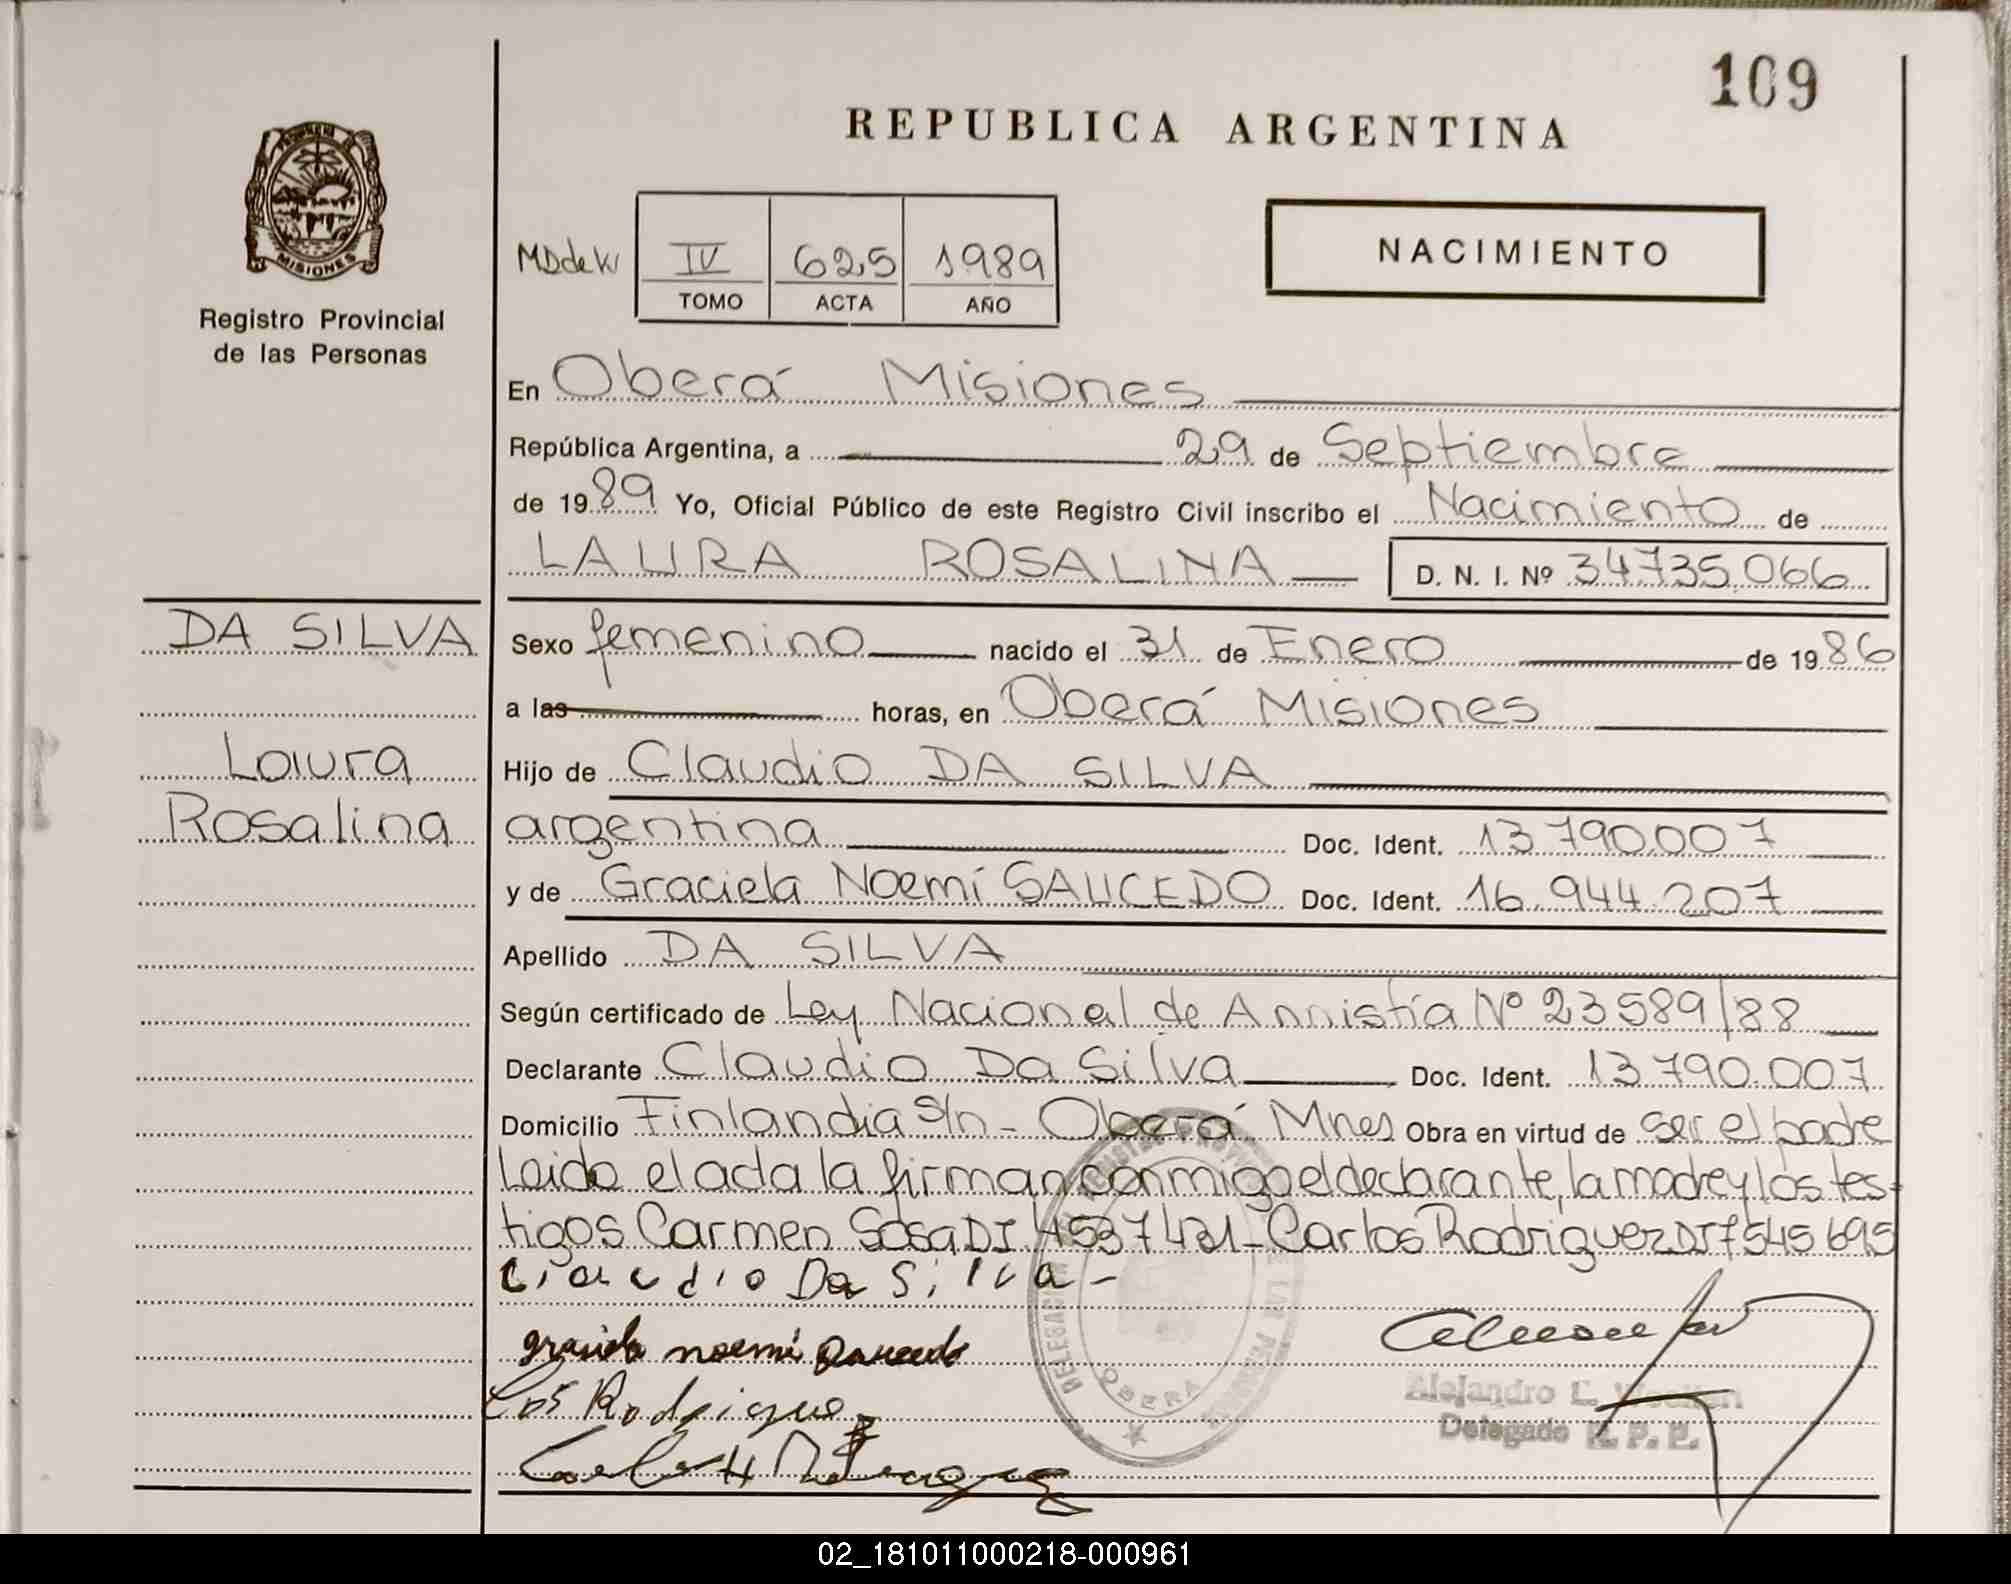 109
REPUBLICA ARGENTINA
MISIONES
Registro Provincial
de las Personas
MDdeK IV 625 1989
TOMO ACTA AÑO
NACIMIENTO
En Oberá Misiones
República Argentina, a 29 de Septiembre
de 1989 Yo, Oficial Público de este Registro Civil inscribo el Nacimiento de
LAURA ROSALINA D. N. I. Nº 34735066
DA SILVA
Laura
Rosalina
Sexo femenino nacido el 31 de Enero de 1986
a las horas, en Oberá Misiones
Hijo de Claudio DA SILVA
argentina Doc. Ident. 13790.007
y de Graciela Noemí SAUCEDO Doc. Ident. 16.944.207
Apellido DA SILVA
Según certificado de Ley Nacional de Amnistía Nº 23589/88
Declarante Claudio Da Silva Doc. Ident. 13790.007
Domicilio Finlandia S/n - Oberá Mnes Obra en virtud de ser el padre
Leida el acta la firman conmigo el declarante, la madre y los tes-
tigos Carmen Sosa DI 4537421 - Carlos Rodriguez DI 7545695
Claudio Da Silva -
graciela noemi Saucedo
Rodrigue
DELEGACIÓN
OBERA
Alejandro L.
Delegado R. P. P.
02_181011000218-000961